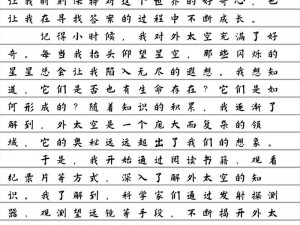 让我在寻找答案的过程中不断成长。
记得小时候,我对外太空充满了好
奇。每当我抬头仰望星空,那些闪烁的
星星总会让我陷入无尽的遐想。我想知
道,它们是否也有生命存在?它们是如
何形成的?随着知识的积累,我逐渐了
解到,外太空是一个庞大而复杂的领
域,它的奥秘远远超出了我们的想象。
于是,我开始通过阅读书籍、观看
纪录片等方式,深入了解外太空的知
识。我了解到,科学家们通过发射探测
器、观测望远镜等手段,不断揭开外太